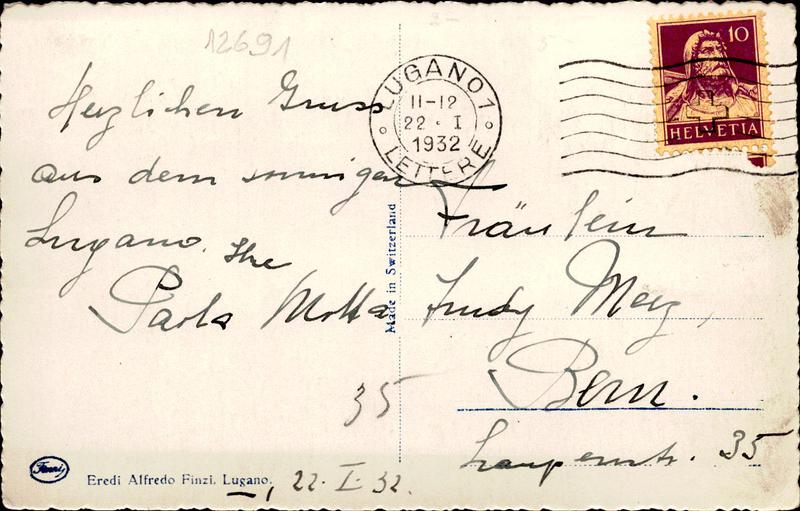 12691
Herzlichen Gruss
aus dem sonnigen
Lugano. Ihre
Paola Motta
35
Finzi
Eredi Alfredo Finzi. Lugano.
22. I. 32.
Made in Switzerland
LUGANO 1
11-12
22 · I
1932
LETTERE
10
HELVETIA
Fräulein
Trudy Merz,
Bern.
Laupenstr. 35